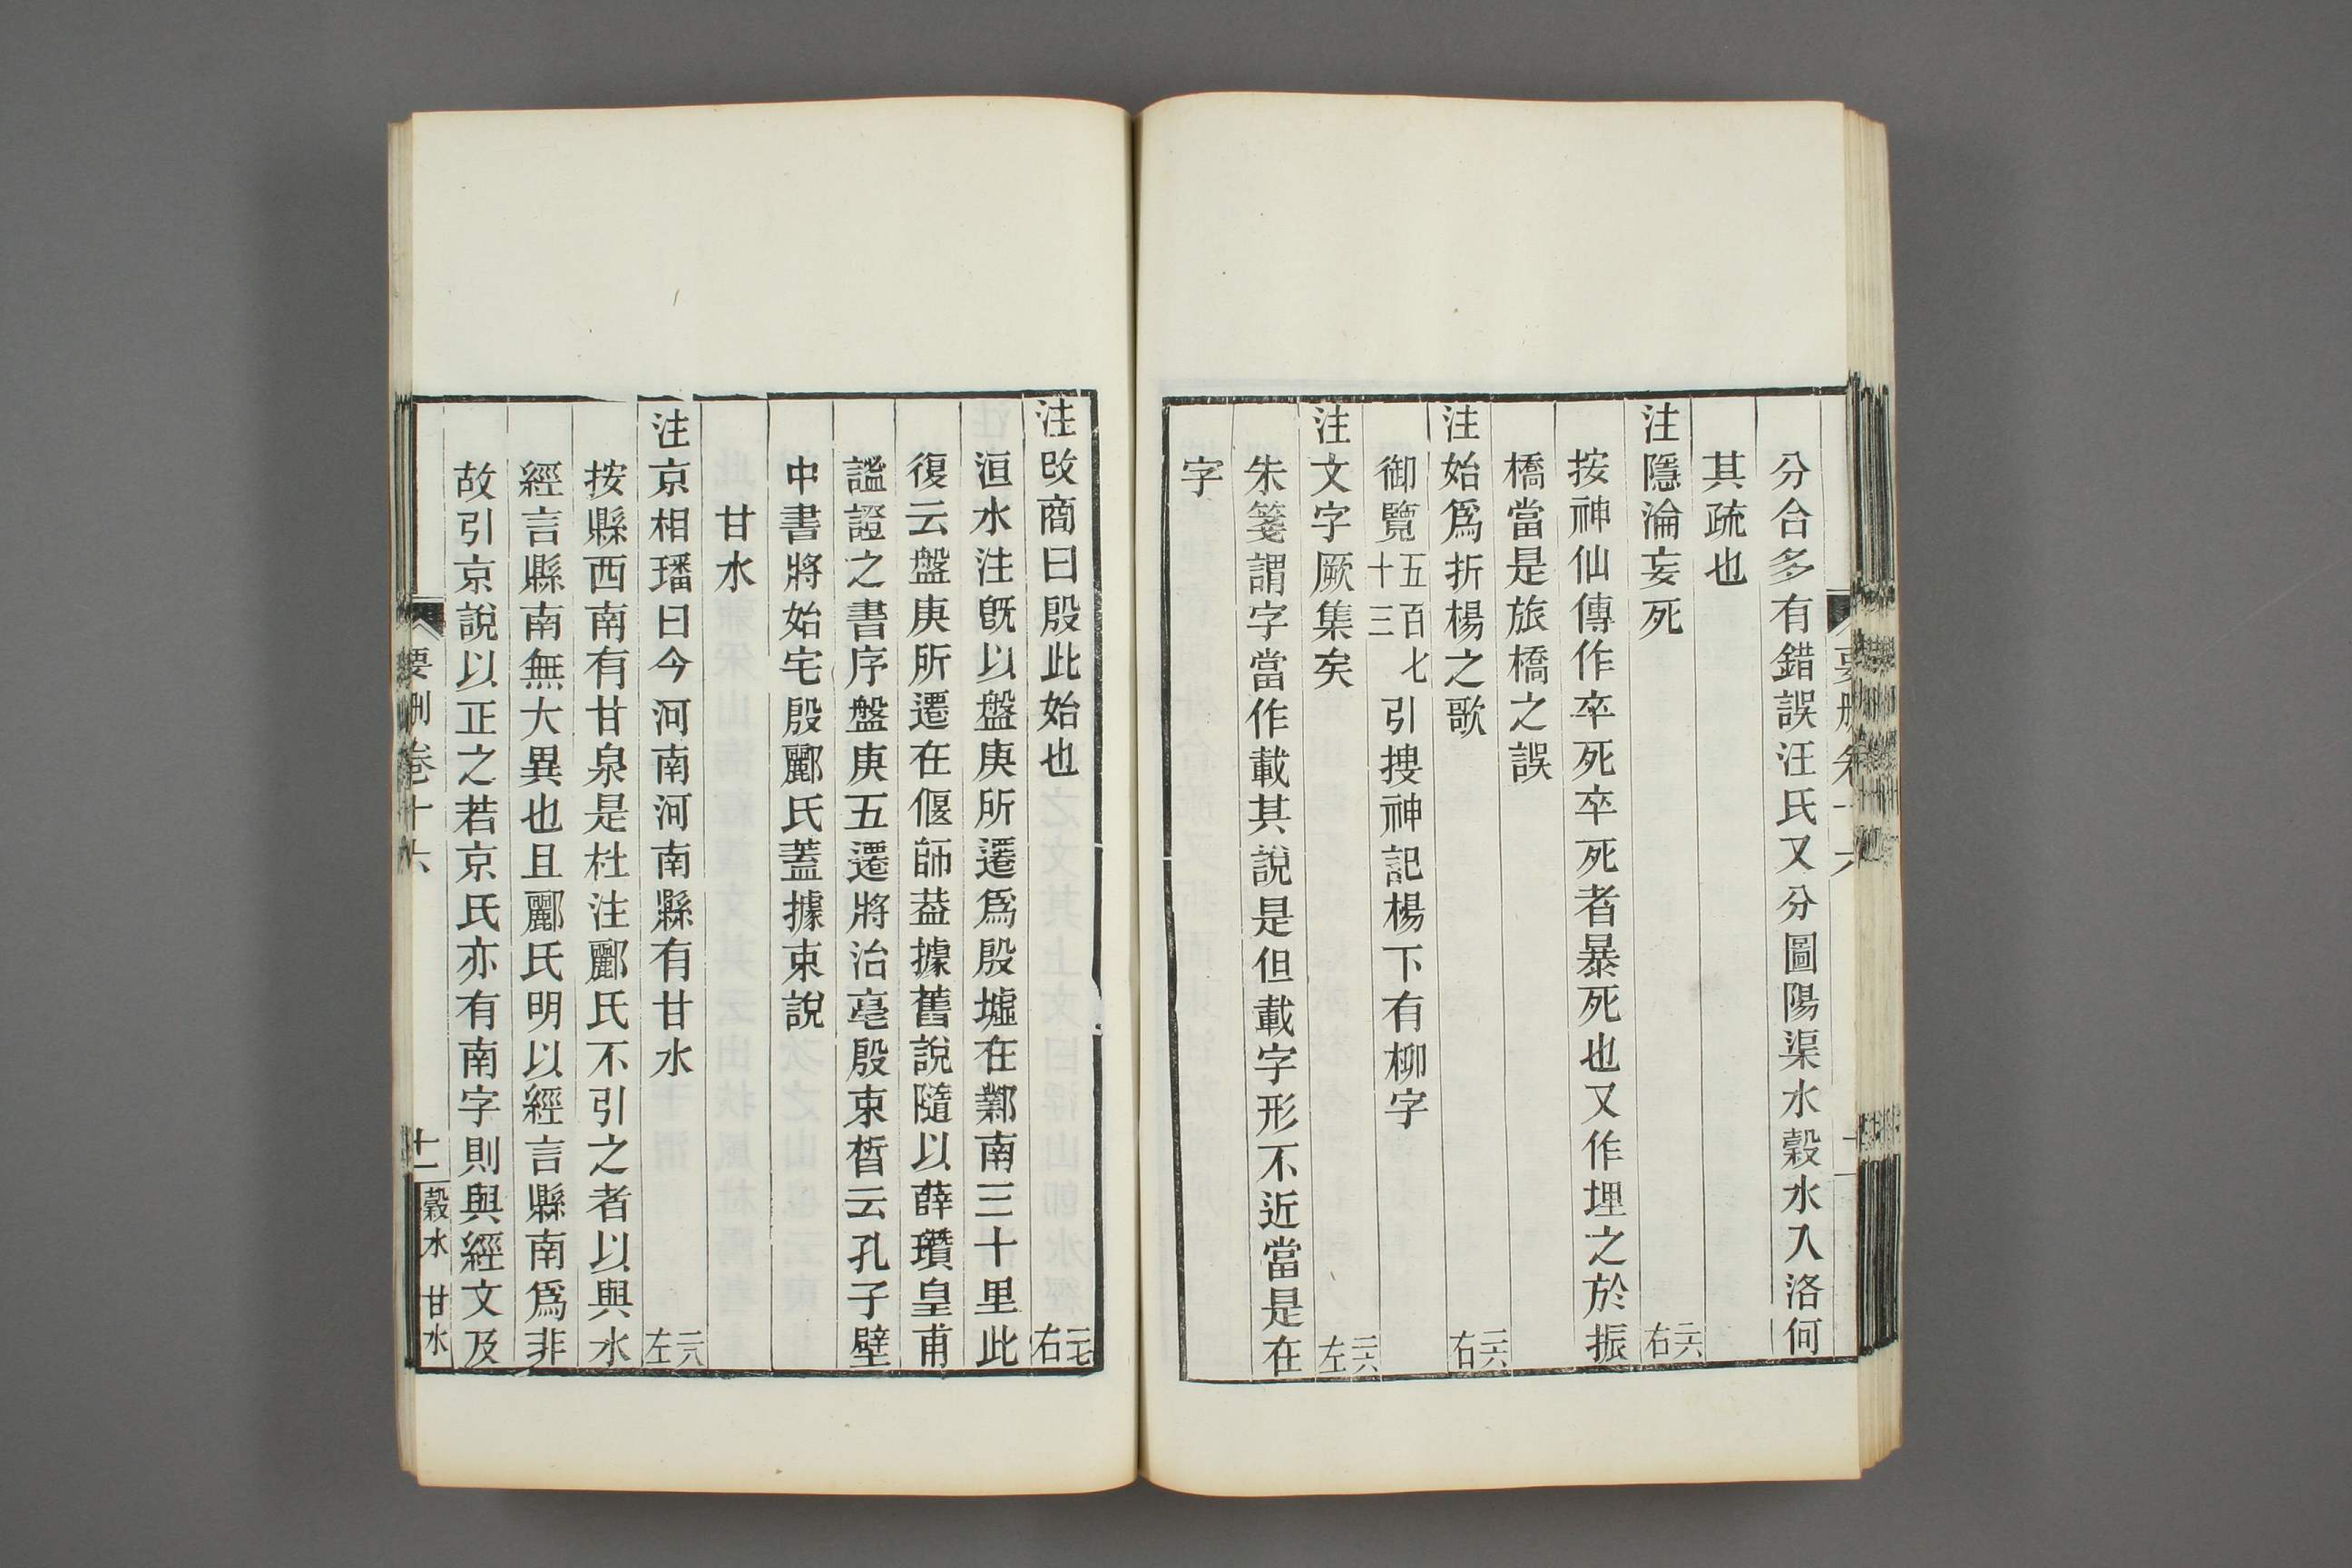 分合多有錯誤汪氏又分圖陽渠水穀水入洛何
其疏也
注隱淪妄死 二六右
按神仙傳作卒死卒死者暴死也又作埋之於振
橋當是旅橋之誤
注始爲折楊之歌 二六右
御覽五百七十三引搜神記楊下有柳字
注文字厥集矣 二六左
朱箋謂字當作載其說是但載字形不近當是在
字
注改商曰殷此始也 二七右
洹水注旣以盤庚所遷爲殷墟在鄴南三十里此
復云盤庚所遷在偃師葢據舊說隨以薛瓚皇甫
謐證之書序盤庚五遷將治亳殷束晳云孔子壁
中書將始宅殷酈氏蓋據束說
甘水
注京相璠曰今河南河南縣有甘水 二八左
按縣西南有甘泉是杜注酈氏不引之者以與水
經言縣南無大異也且酈氏明以經言縣南爲非
故引京說以正之若京氏亦有南字則與經文及
要刪卷十六 十一 穀水 甘水